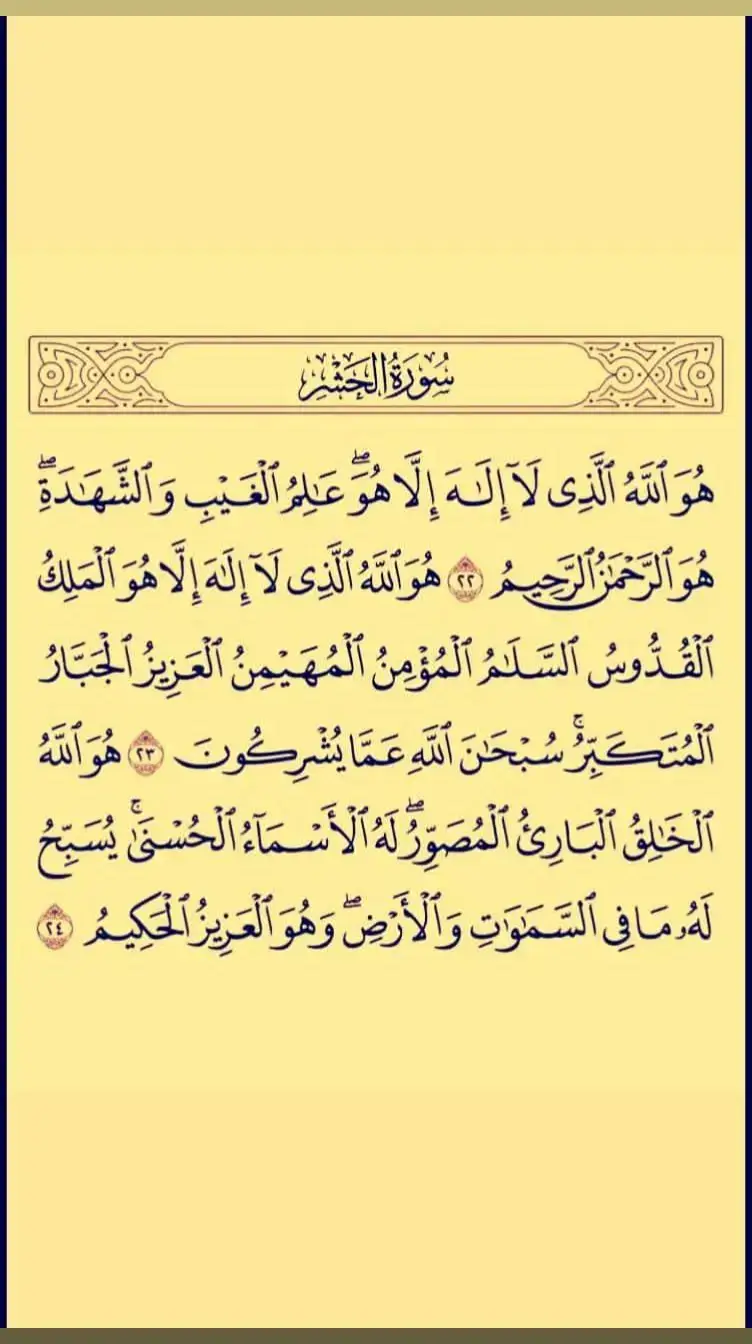 سُورَةُ الحَشْرِ
هُوَ ٱللَّهُ ٱلَّذِى لَآ إِلَـٰهَ إِلَّا هُوَۖ عَـٰلِمُ ٱلْغَيْبِ وَٱلشَّهَـٰدَةِۖ
هُوَ ٱلرَّحْمَـٰنُ ٱلرَّحِيمُ ٢٢ هُوَ ٱللَّهُ ٱلَّذِى لَآ إِلَـٰهَ إِلَّا هُوَ ٱلْمَلِكُ
ٱلْقُدُّوسُ ٱلسَّلَـٰمُ ٱلْمُؤْمِنُ ٱلْمُهَيْمِنُ ٱلْعَزِيزُ ٱلْجَبَّارُ
ٱلْمُتَكَبِّرُۚ سُبْحَـٰنَ ٱللَّهِ عَمَّا يُشْرِكُونَ ٢٣ هُوَ ٱللَّهُ
ٱلْخَـٰلِقُ ٱلْبَارِئُ ٱلْمُصَوِّرُۖ لَهُ ٱلْأَسْمَآءُ ٱلْحُسْنَىٰۚ يُسَبِّحُ
لَهُۥ مَا فِى ٱلسَّمَـٰوَٰتِ وَٱلْأَرْضِۖ وَهُوَ ٱلْعَزِيزُ ٱلْحَكِيمُ ٢٤